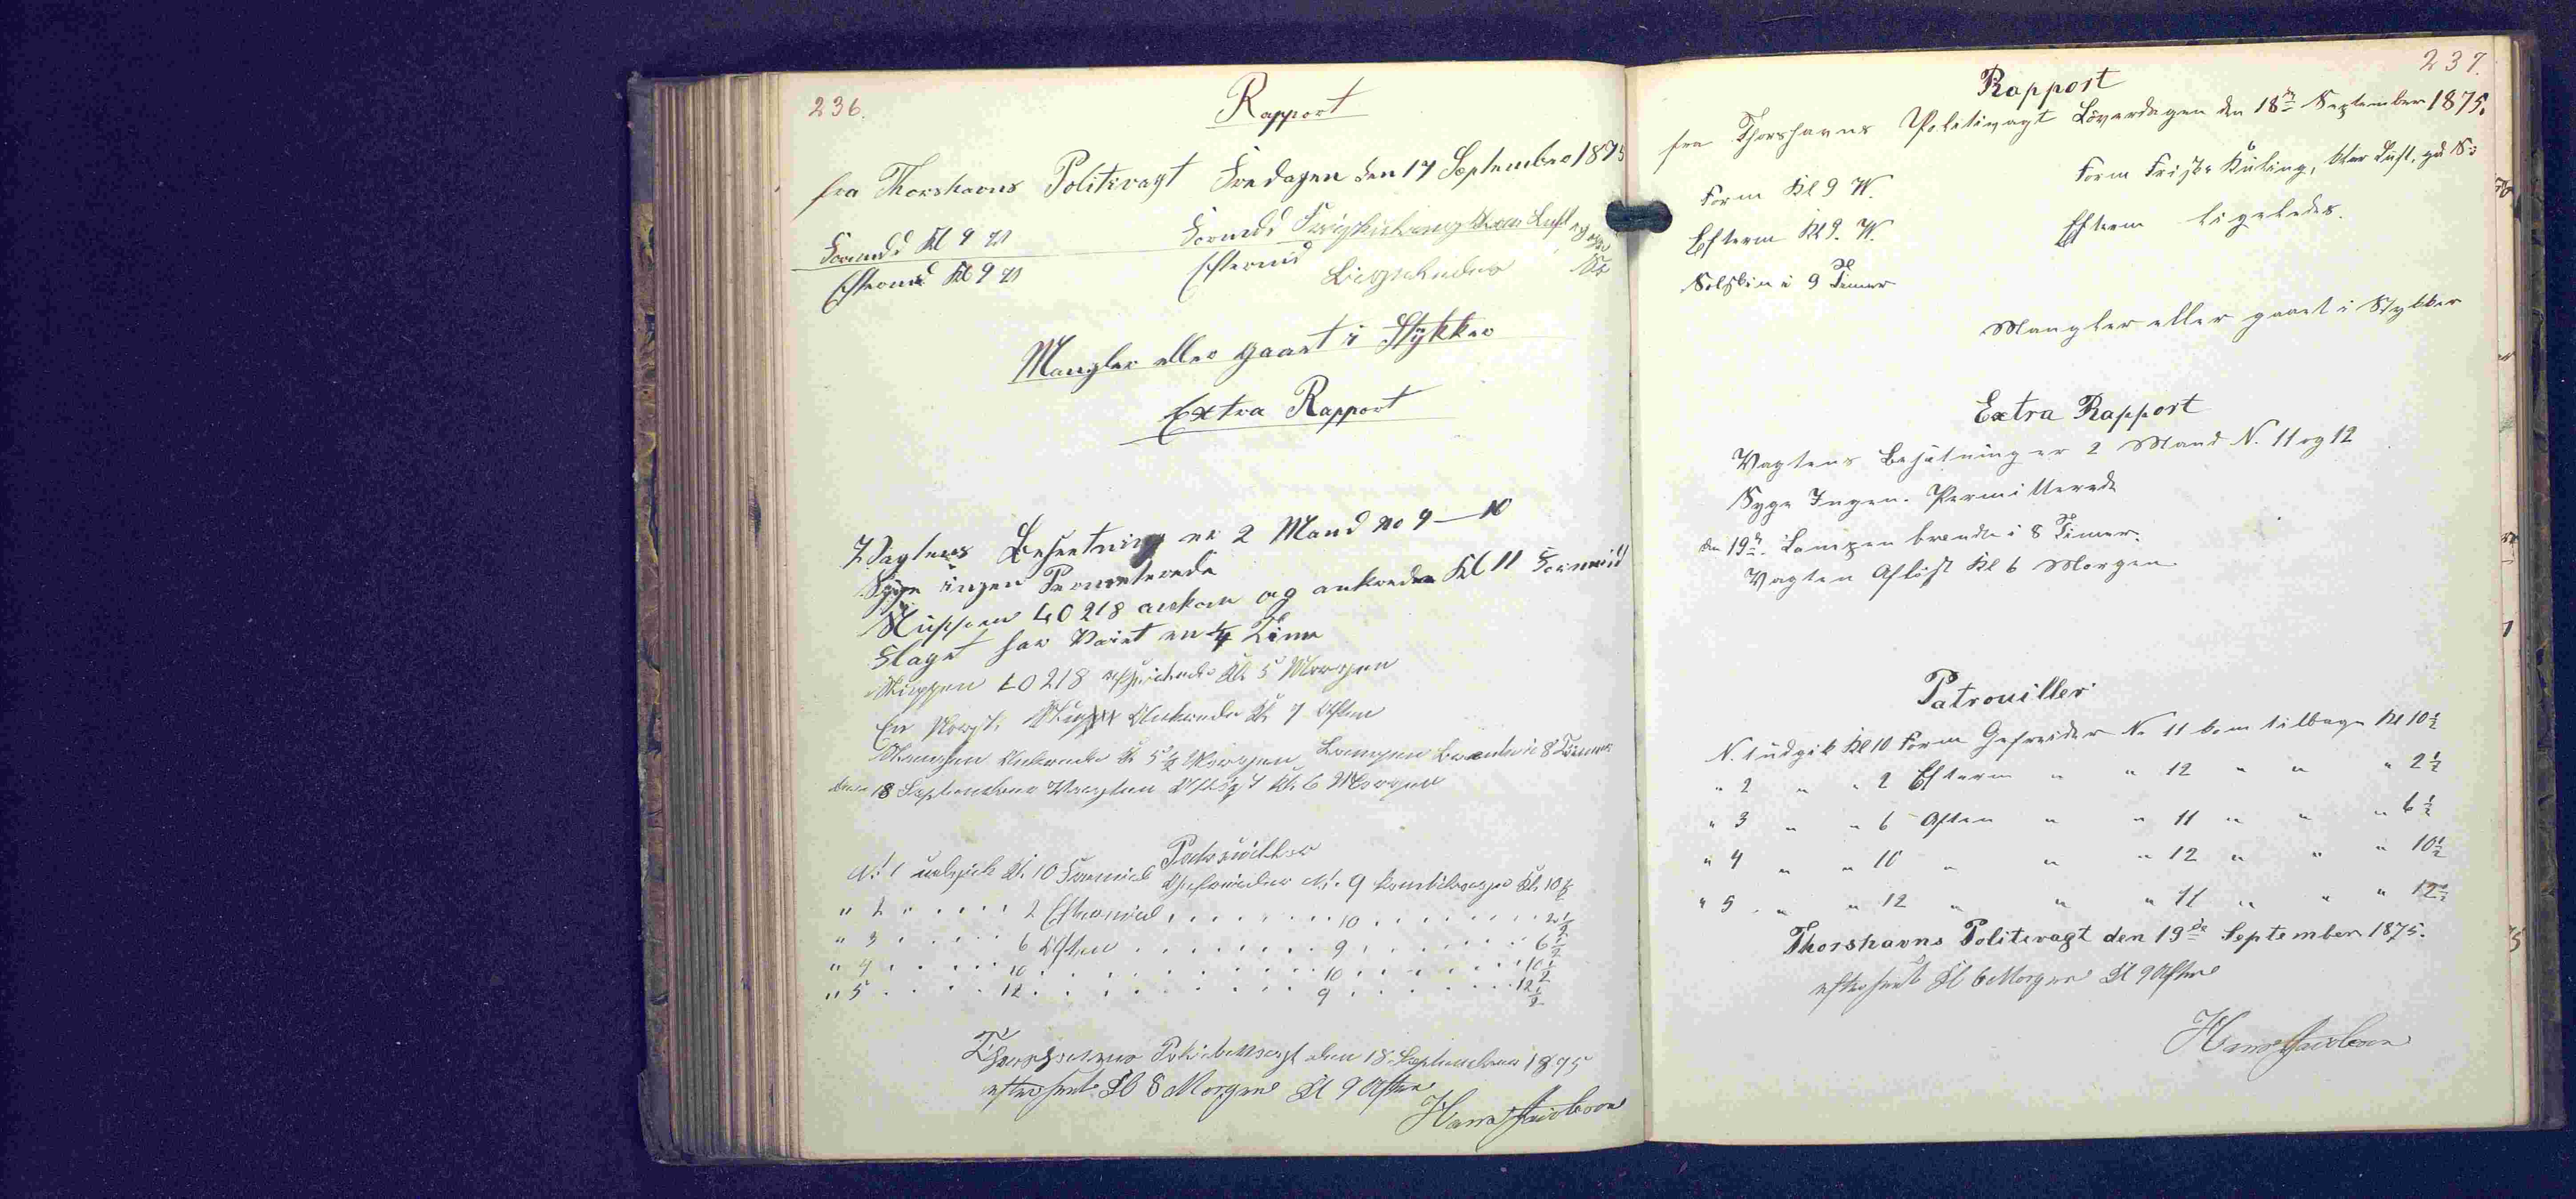 236.
Rapport
fra Thorshavns Politivagt Fredagen den 17 September 1875
Formid Kl 9 W
Eftermid Kl 9 W
Formid Friskkuling klar Luft og
Eftermid Ligeledes
Mangler eller gaaet i Stykker
Extra Rapport
Vagtens Besætning er 2 Mand No 9 — 10
Syge ingen Permiterede
Sluppen 40218 ankom og ankrede Kl 11 Formid
Flaget har Vaiet en 1/4 Time
Sluppen 40218 afseilede Kl. 5 Morgen
En Ankrede Kl 7 Aften
Ankrede Kl 5 1/2 Morgen Lampen brændte i 8 Timer
den 18 September Vagten Afløst Kl. 6 Morgen
Patrouiller
N: 1 udgik Kl. 10 Formid Gefreider N: 9 kom tilbage Kl. 10 1/2
" 2 " " " " 2 Eftermid " " " 10 " " " 2 1/2
" 3 " " " " 6 Aften " " " 9 " " " 6 1/2
" 4 " " " " 10 " " " 10 " " " 10 1/2
" 5 " " " " 12 " " " 9 " " " 12 1/2
Thorshavns Politivagt den 18 September 1875
efterseet Kl 8 Morgen Kl 9 Aften
Hans Jacobsen
237.
Rapport
fra Thorshavns Politivagt Löverdagen den 18de September 1875.
Form Kl 9 W.
Efterm Kl 9. W.
Solskin i 9 Timer
Form Friske Kuling, klar Luft, på S:
Efterm ligeledes.
Mangler eller gaaet i Stykker
Extra Rapport
Vagtens Besætning er 2 Mand N. 11 og 12
Syge Ingen. Permitterede
den 19de. Lampen brændte i 8 Timer.
Vagten Aflöst Kl 6 Morgen.
Patrouiller
N. 1 udgik Kl 10 Form Gefreider N. 11 kom tilbage Kl 10 1/2
" 2 " " 2 Efterm " " 12 " " " 2 1/2
" 3 " " 6 Aften " " 11 " " " 6 1/2
" 4 " " 10 " " " 12 " " " 10 1/2
" 5 " " 12 " " " 11 " " " 12 1/2
Thorshavns Politivagt den 19de September 1875.
efterseet Kl 6 Morgen Kl 9 Aften
Hans Jacobsen